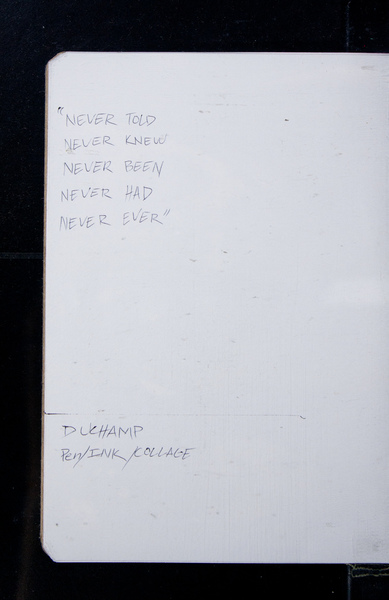 "NEVER TOLD
NEVER KNEW
NEVER BEEN
NEVER HAD
NEVER EVER"
DUCHAMP
PEN/INK/COLLAGE